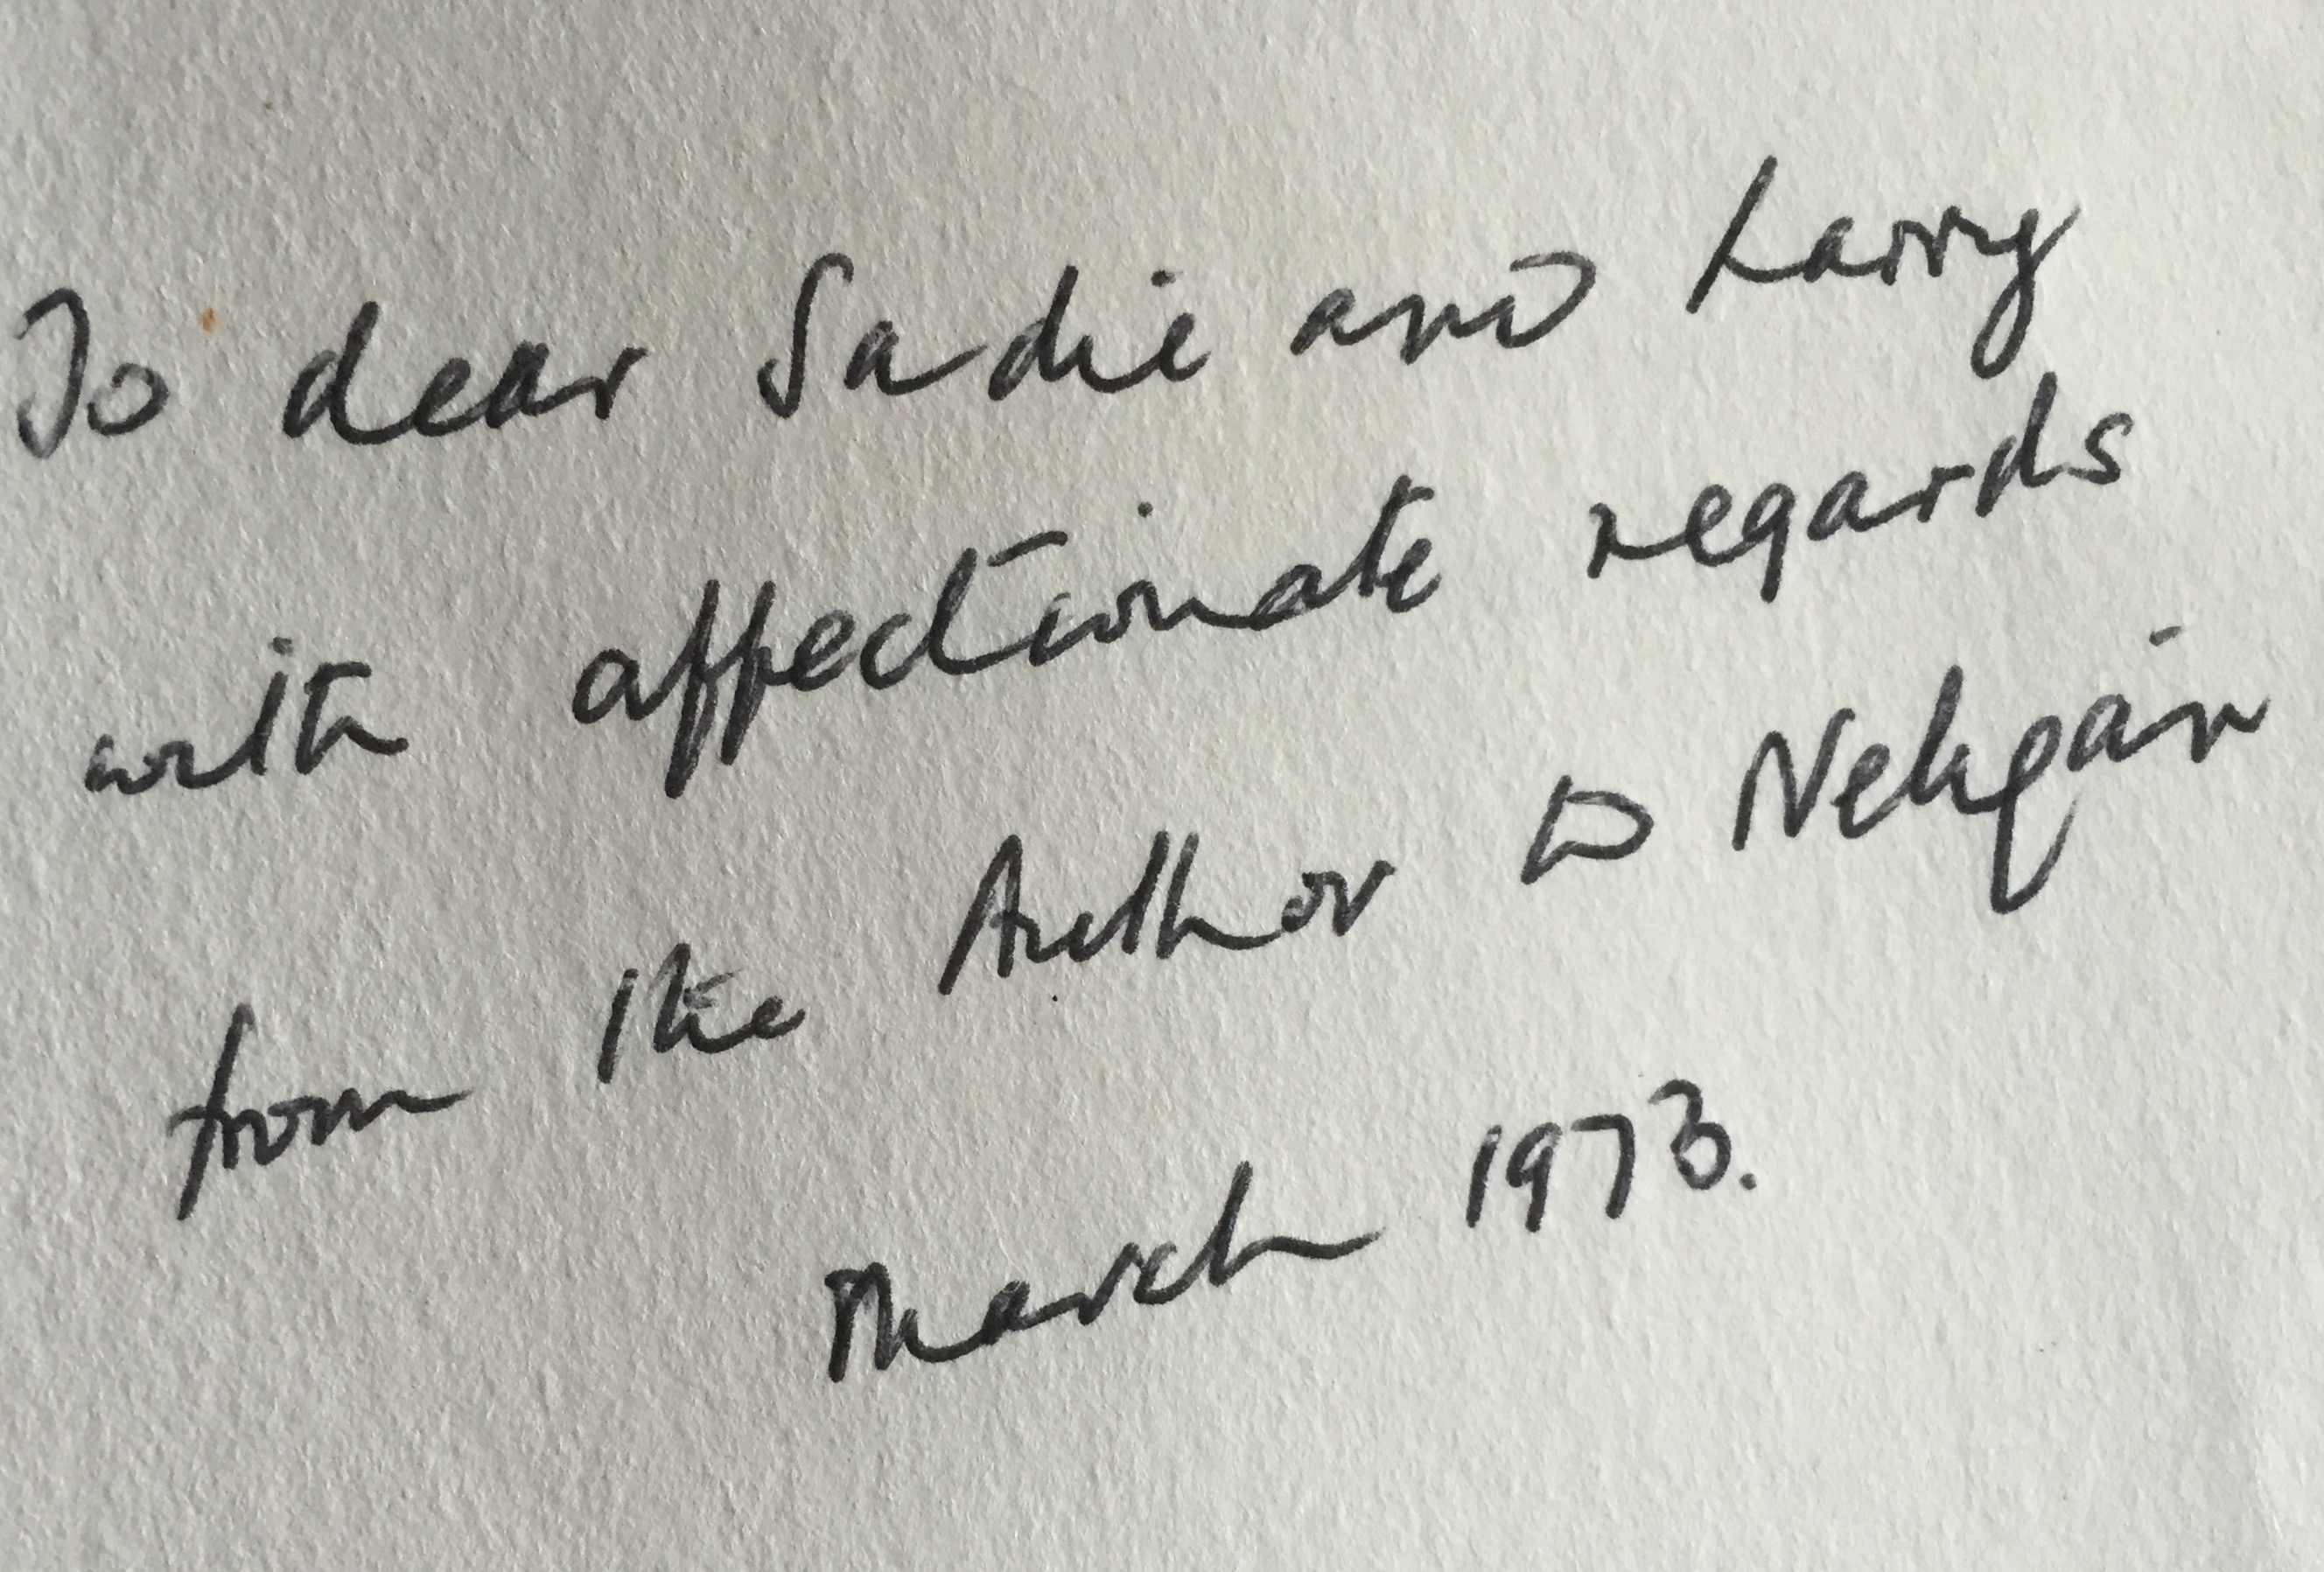 To dear Sadie and Larry
with affectionate regards
from the Author D Neligan
March 1973.